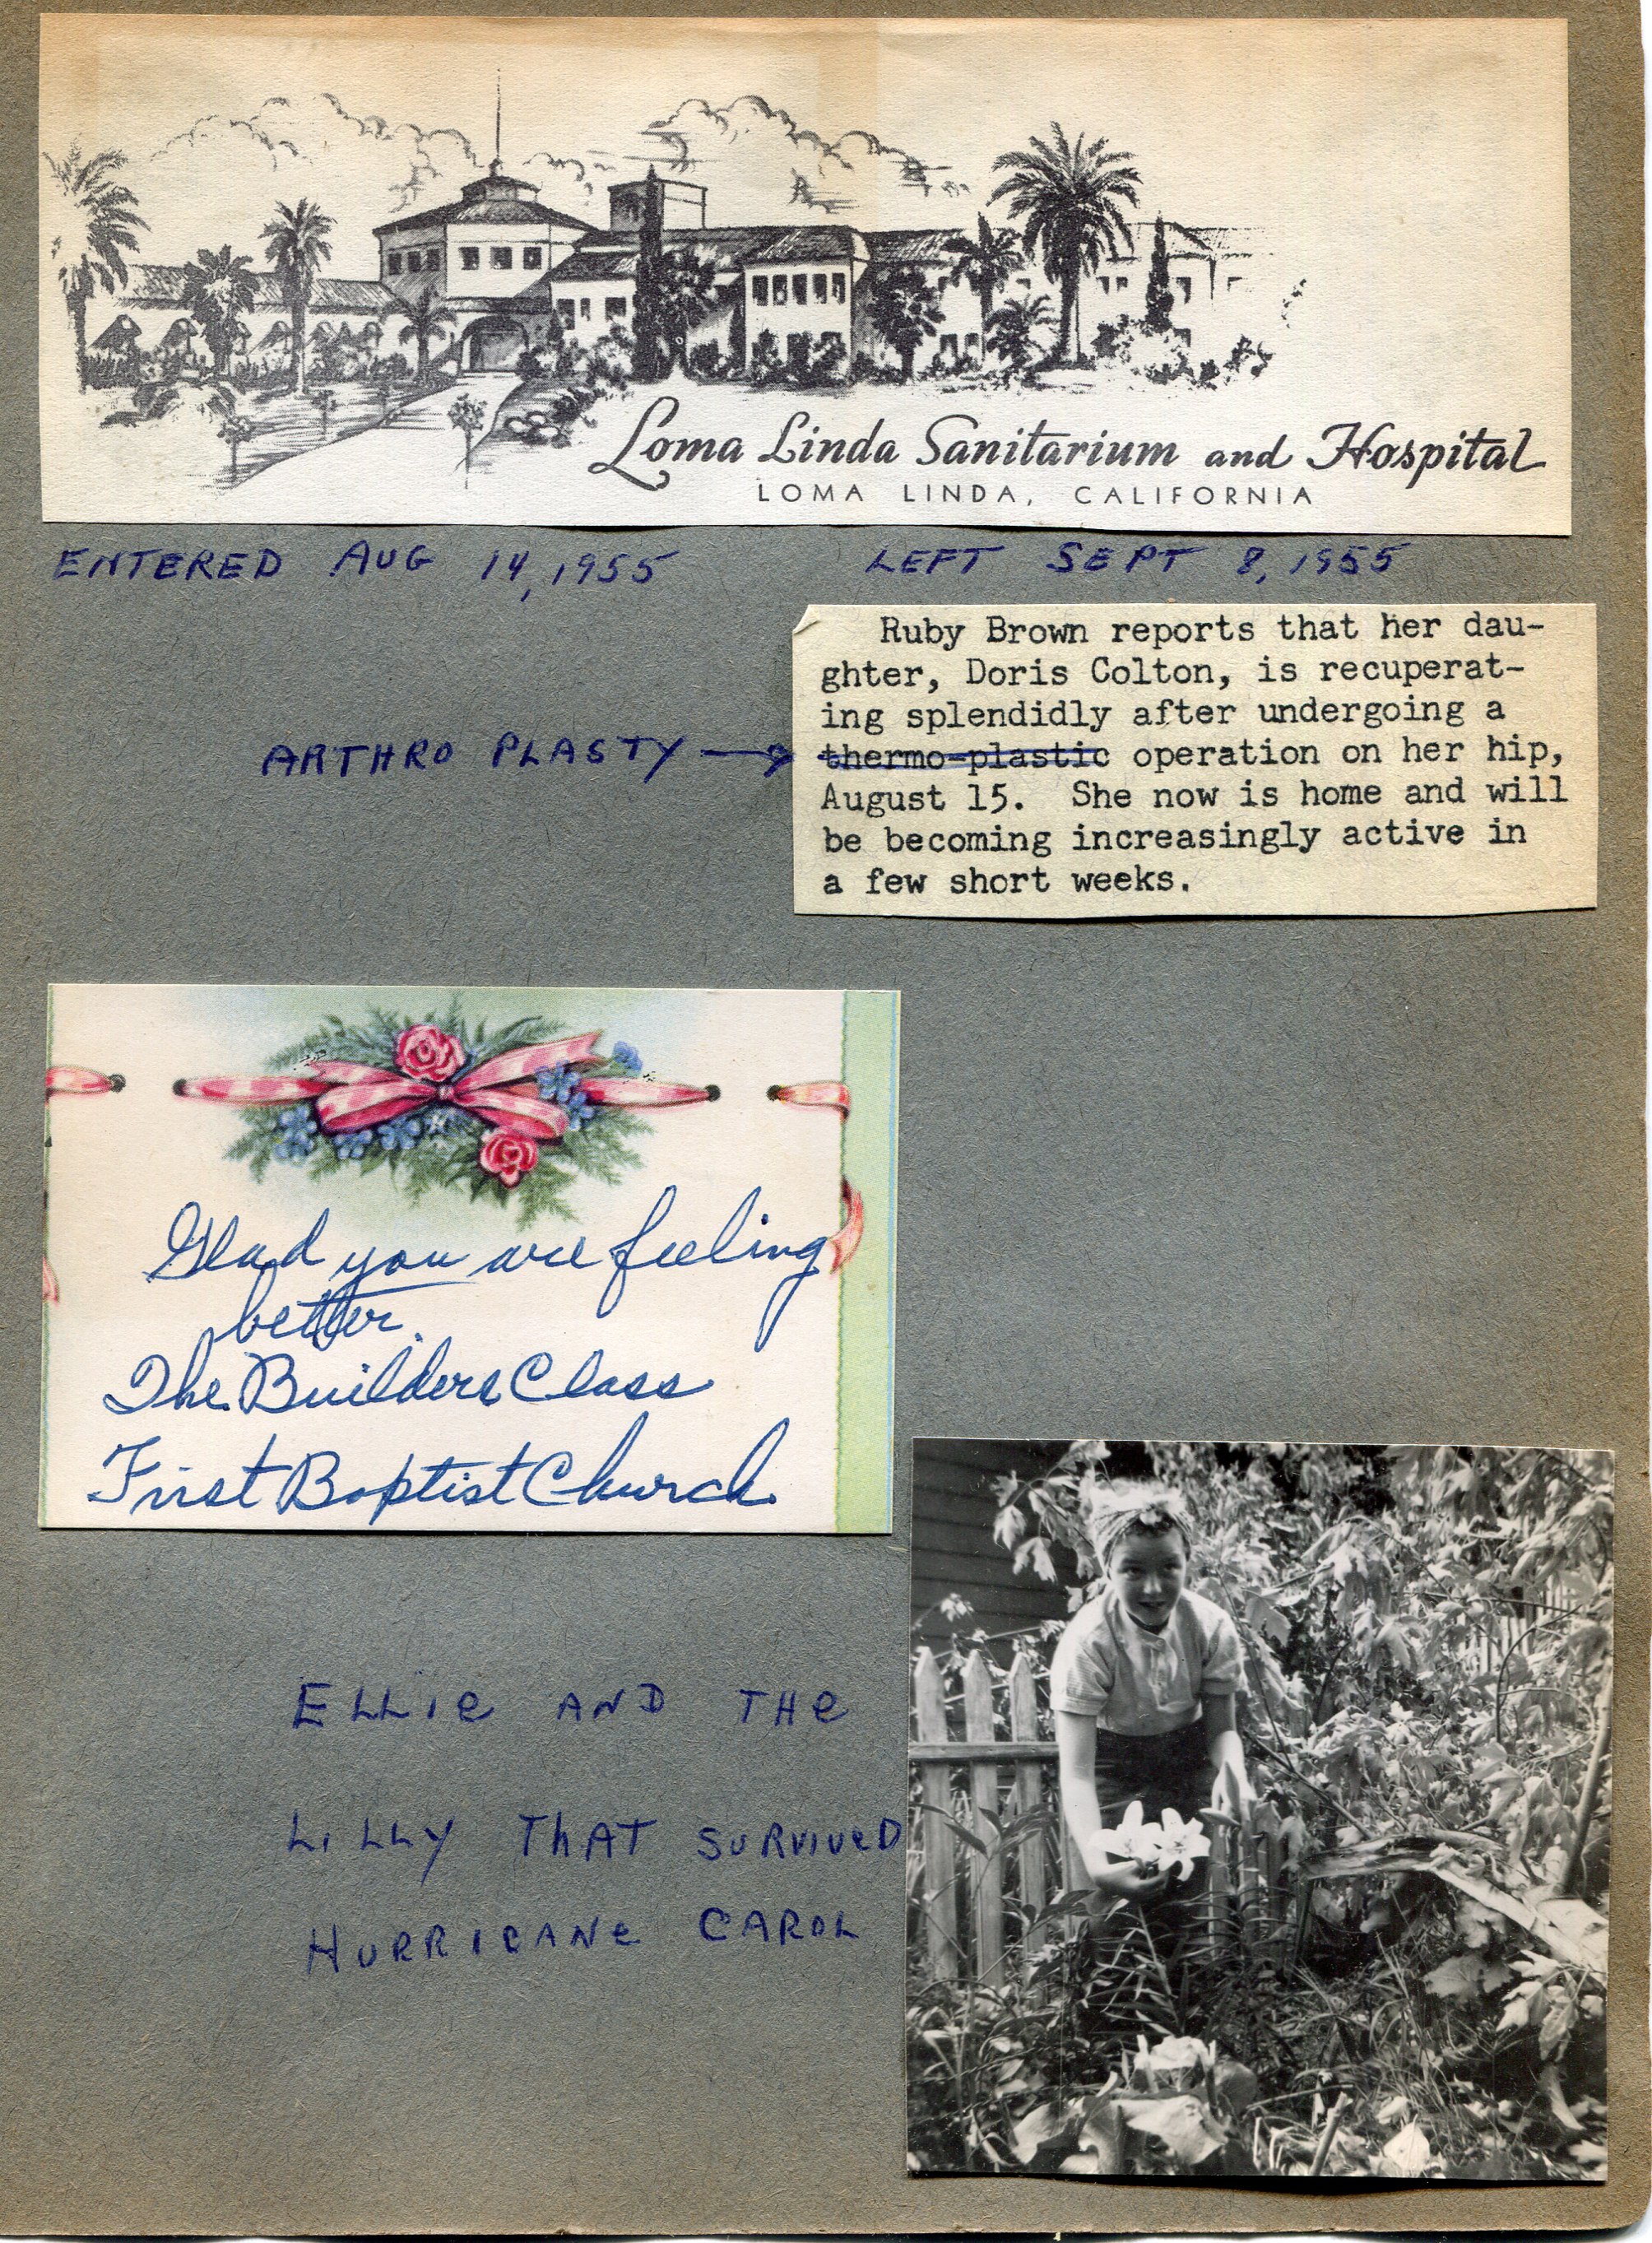 Loma Linda Sanitarium and Hospital
LOMA LINDA, CALIFORNIA
ENTERED AUG 14, 1955 LEFT SEPT 8, 1955
Ruby Brown reports that her dau-
ghter, Doris Colton, is recuperat-
ing splendidly after undergoing a
ARTHRO PLASTY → thermo-plastic operation on her hip,
August 15. She now is home and will
be becoming increasingly active in
a few short weeks.
Glad you are feeling
better.
The Builders Class
First Baptist Church
ELLie AND THe
LiLLY THAT SURVIVeD
HURRICANe CAROL